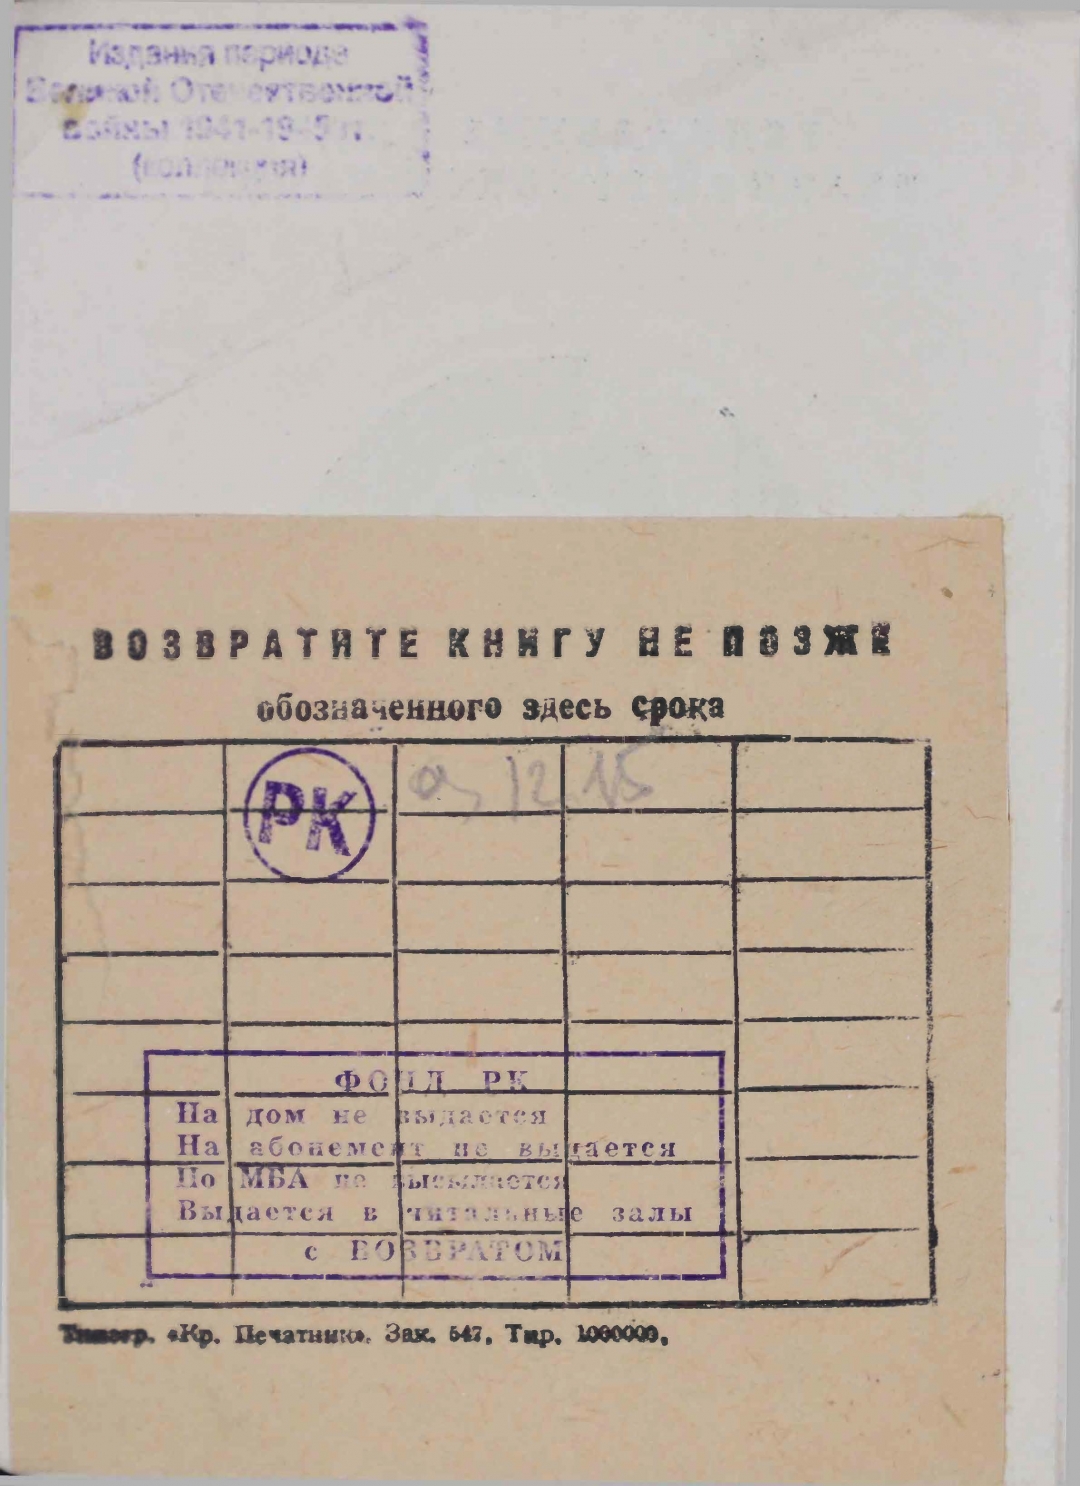 Изданья периода
Великой Отечественной
войны 1941-1945 гг.
(коллекция)
ВОЗВРАТИТЕ КНИГУ НЕ ПОЗЖЕ
обозначенного здесь срока
РК
12 15
ФОНД РК
На дом не выдается
На абонемент не выдается
По МБА не высылается
Выдается в читальные залы
с ВОЗВРАТОМ
Типогр. «Кр. Печатник». Зак. 547. Тир. 1000000.